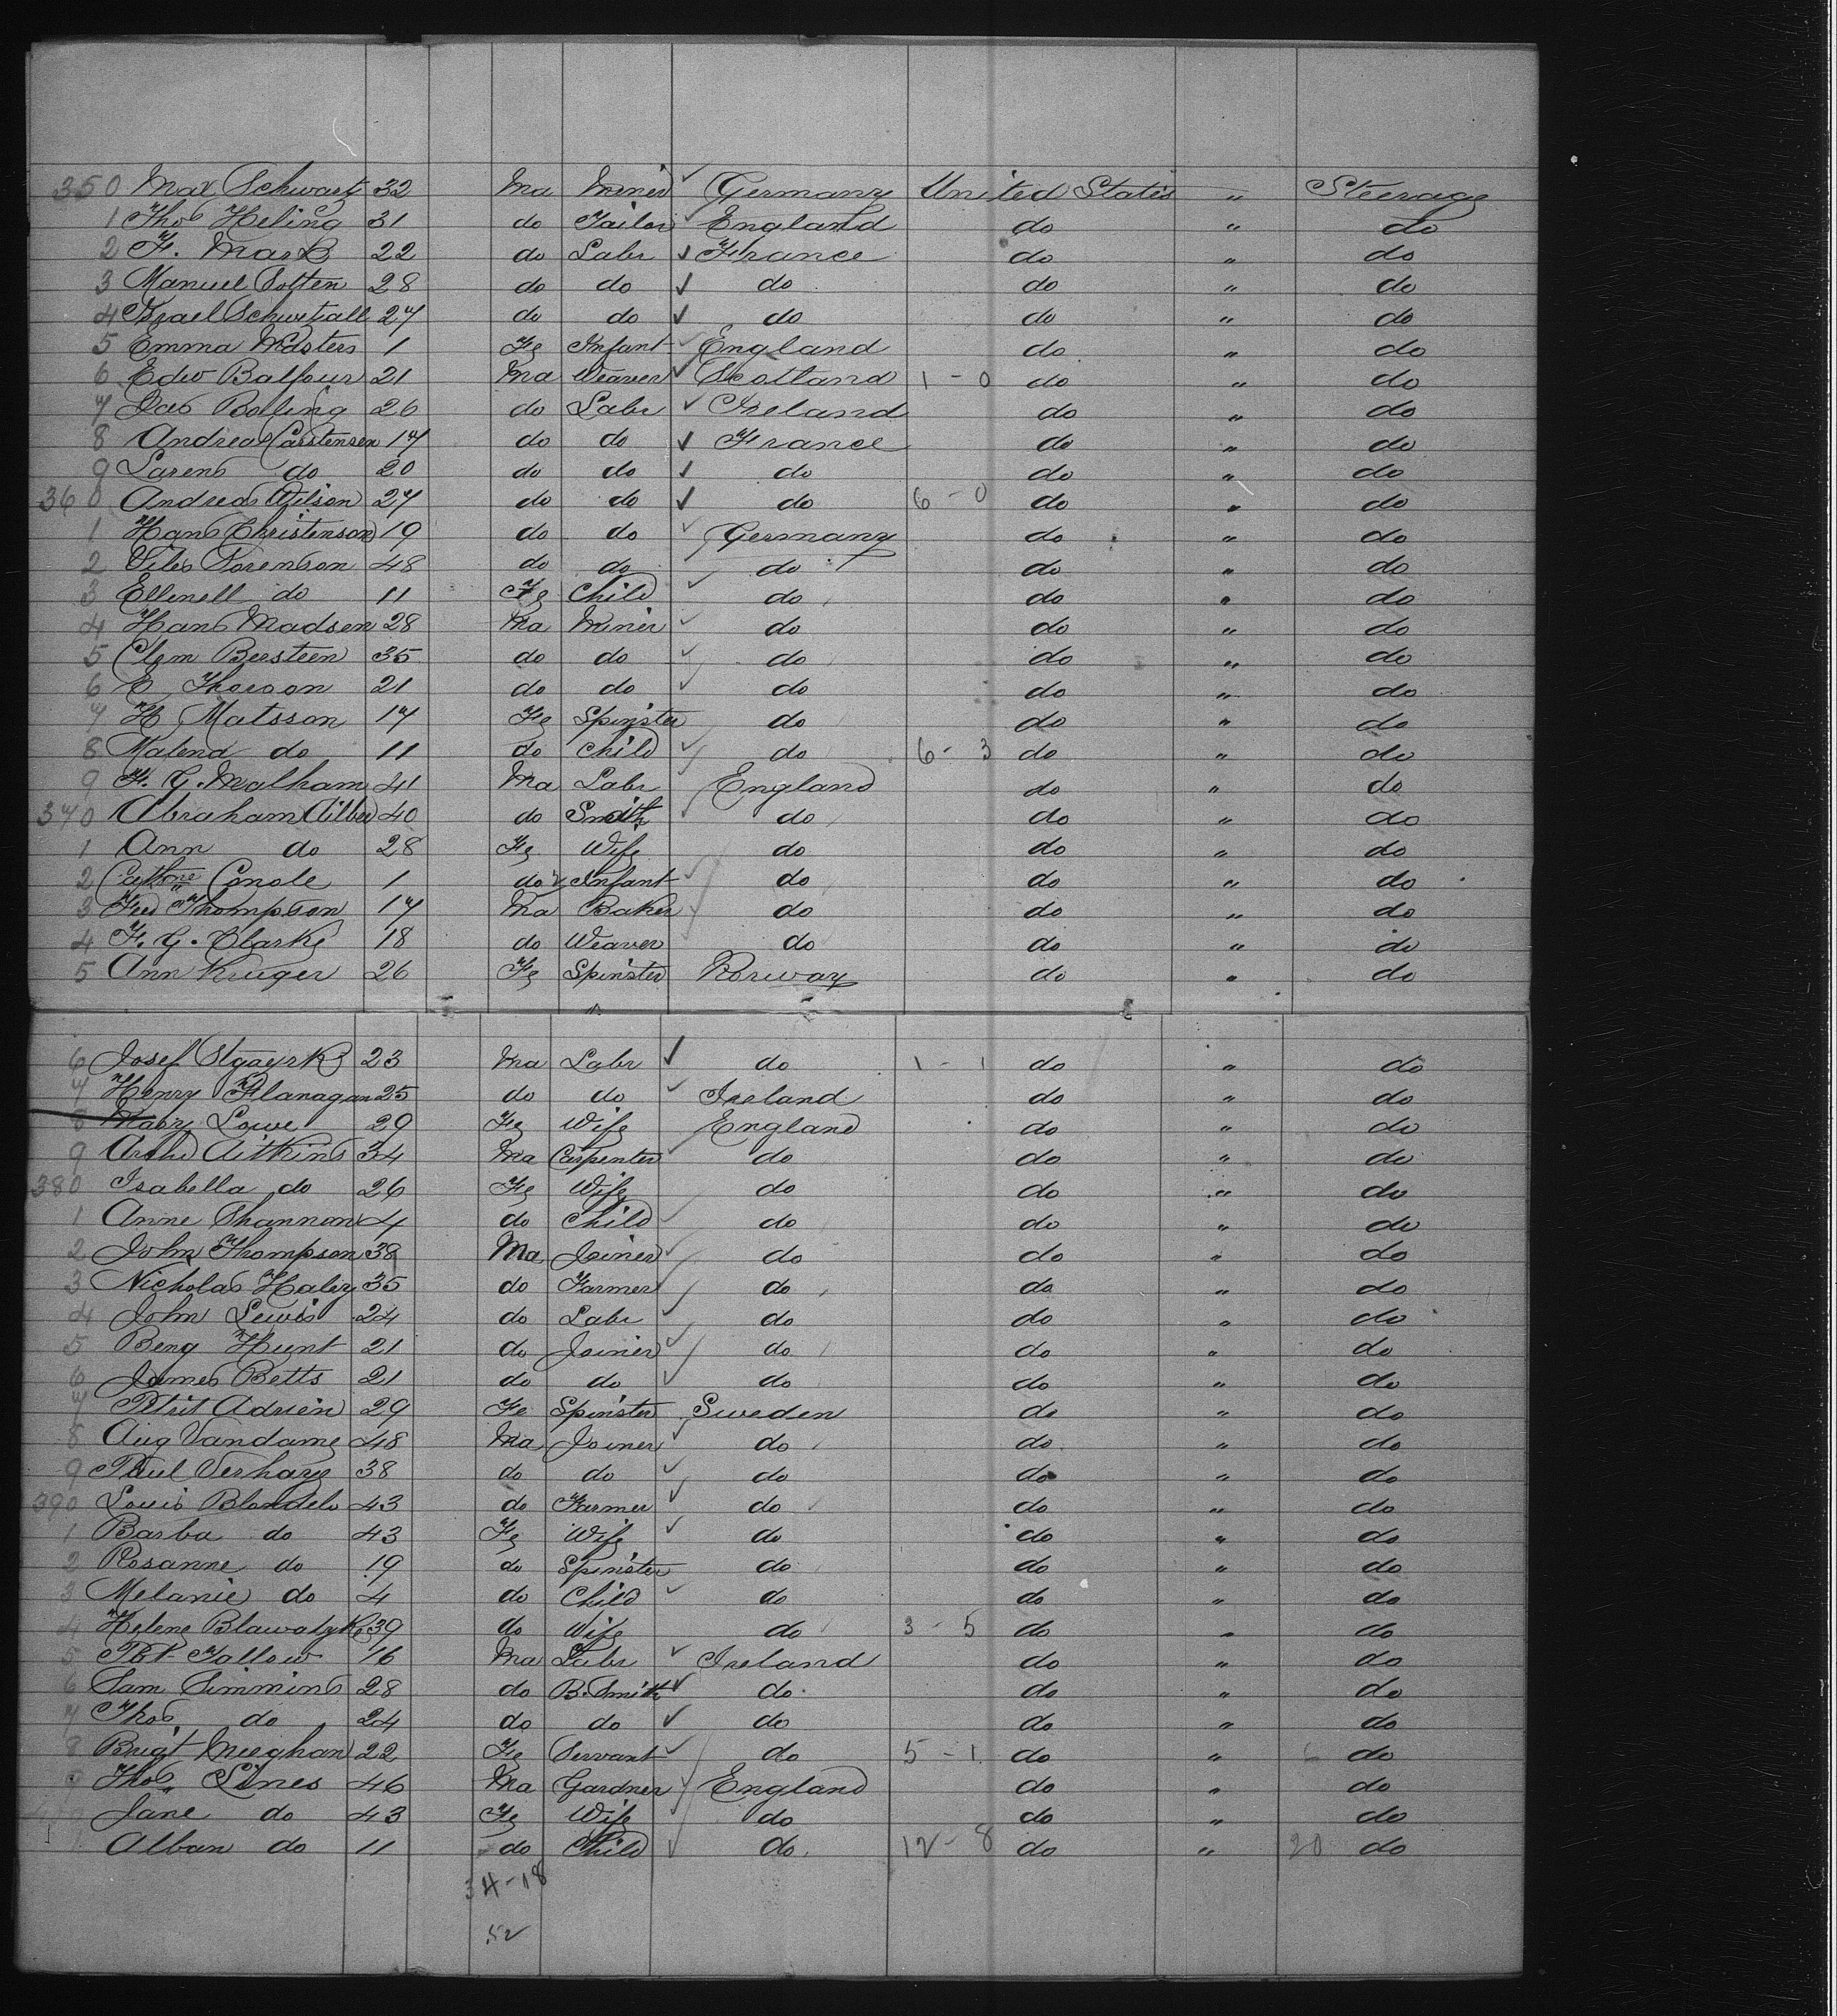 350 Max Schwartz 32 Ma Miner ✓ Germany United States " Steerage
1 Thos Heling 31 do Tailor ✓ England do " do
2 F. Mark 22 do Labr ✓ France do " do
3 Manuel Solten 28 do do ✓ do do " do
4 Israel Schwetzall 27 do do ✓ do do " do
5 Emma Masters 1 Fe Infant ✓ England do " do
6 Edw Balfour 21 Ma Weaver ✓ Scotland 1 - 0 do " do
7 Jas Bolling 26 do Labr ✓ Ireland do " do
8 Andreas Carstensen 17 do do ✓ France do " do
9 Larens do 20 do do ✓ do do " do
360 Andreas Wilson 27 do do ✓ do 6 - 0 do " do
1 Hans Christenson 19 do do ✓ Germany do " do
2 Niles Sorenson 48 do do do do " do
3 Ellenell do 11 Fe Child ✓ do do " do
4 Hans Madsen 28 Ma Miner ✓ do do " do
5 Clem Bersteen 35 do do ✓ do do " do
6 E Thorson 21 do do ✓ do do " do
7 H Matsson 17 Fe Spinster do do " do
8 Malend do 11 do Child ✓ do 6 - 3 do " do
9 F. G. Malham 41 Ma Labr England do " do
370 Abraham 40 do Smith ✓ do do " do
1 Ann do 28 Fe Wife do do " do
2 Cathne Conole 1 do Infant ✓ do do " do
3 Fred Thompson 17 Ma Baker ✓ do do " do
4 F. G. Clarke 18 do Weaver do do " do
5 Ann Kruger 26 Fe Spinster Norway do " do
6 Josef 23 Ma Labr ✓ do 1 - 1 do " do
7 Henry Flanagan 25 do do ✓ Ireland do " do
8 Mary Lowe 29 Fe Wife ✓ England do " do
9 Archd Aitkins 34 Ma Carpenter ✓ do do " do
380 Isabella do 26 Fe Wife do do " do
1 Anne Shannon 4 do Child ✓ do do " do
2 John Thompson 38 Ma Joiner ✓ do do " do
3 Nicholas Haley 35 do Farmer ✓ do do " do
4 John Lewis 24 do Labr ✓ do do " do
5 Benj Hunt 21 do Joiner ✓ do do " do
6 James Betts 21 do do ✓ do do " do
7 Petrit Adrien 29 Fe Spinster Sweden do " do
8 Aug Vandame 48 Ma Joiner ✓ do do " do
9 Paul Verhaye 38 do do ✓ do do " do
390 Louis Blondels 43 do Farmer ✓ do do " do
1 Barba do 43 Fe Wife ✓ do do " do
2 Rosanne do 19 do Spinster do do " do
3 Melanie do 4 do Child ✓ do do " do
4 Helene Blawatyke 39 do Wife do 3 - 5 do " do
5 Pat Fallow 16 Ma Labr ✓ Ireland do " do
6 Sam Simmins 28 do B. Smith ✓ do do " do
7 Thos do 24 do do ✓ do do " do
8 Brigt Meeghan 22 Fe Servant ✓ do 5 - 1 do " 6 do
9 Thos Lines 46 Ma Gardner ✓ England do " do
Jane do 43 Fe Wife ✓ do do " do
1 Alban do 11 do Child ✓ do 12 - 8 do " 20 do
34-18
52